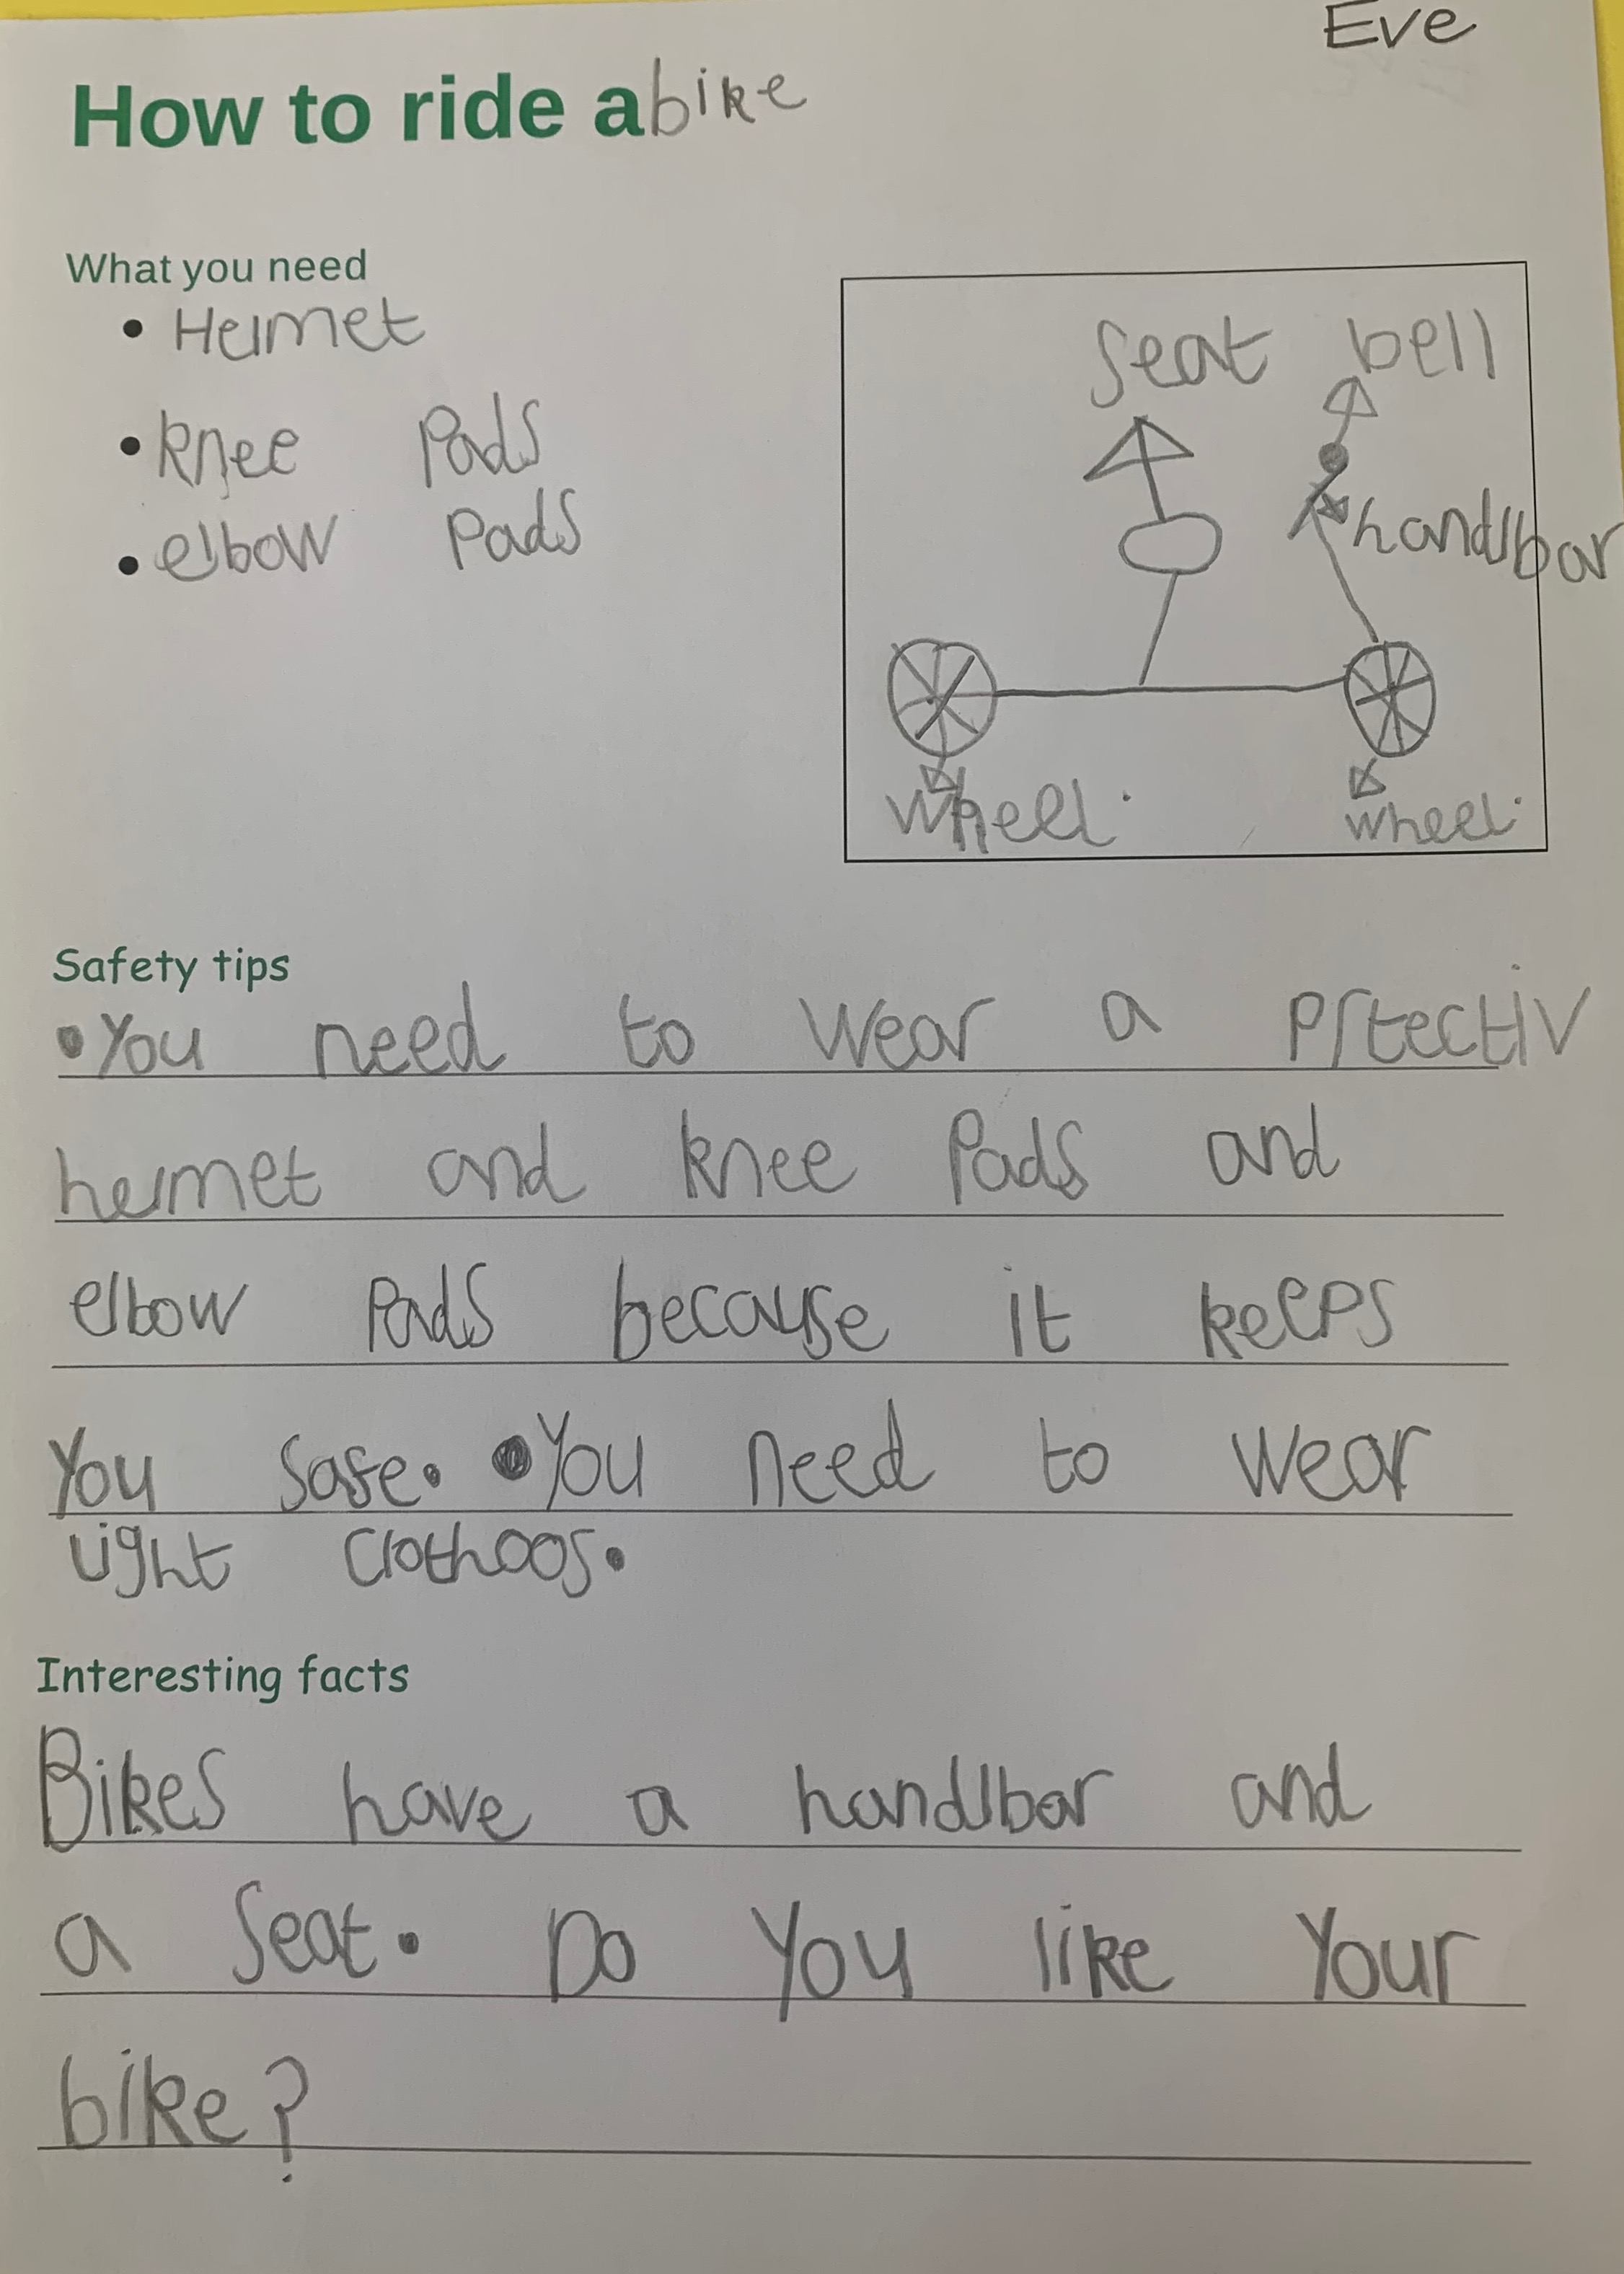 Eve
How to ride a bike
What you need
• Helmet
• knee Pads
• elbow Pads
seat bell
handlbar
wheel.
wheel.
Safety tips
• You need to wear a prtectiv
helmet and knee Pads and
elbow Pads because it keeps
You safe. • You need to wear
light Clothoos.
Interesting facts
Bikes have a handlbar and
a seat. Do You like Your
bike?